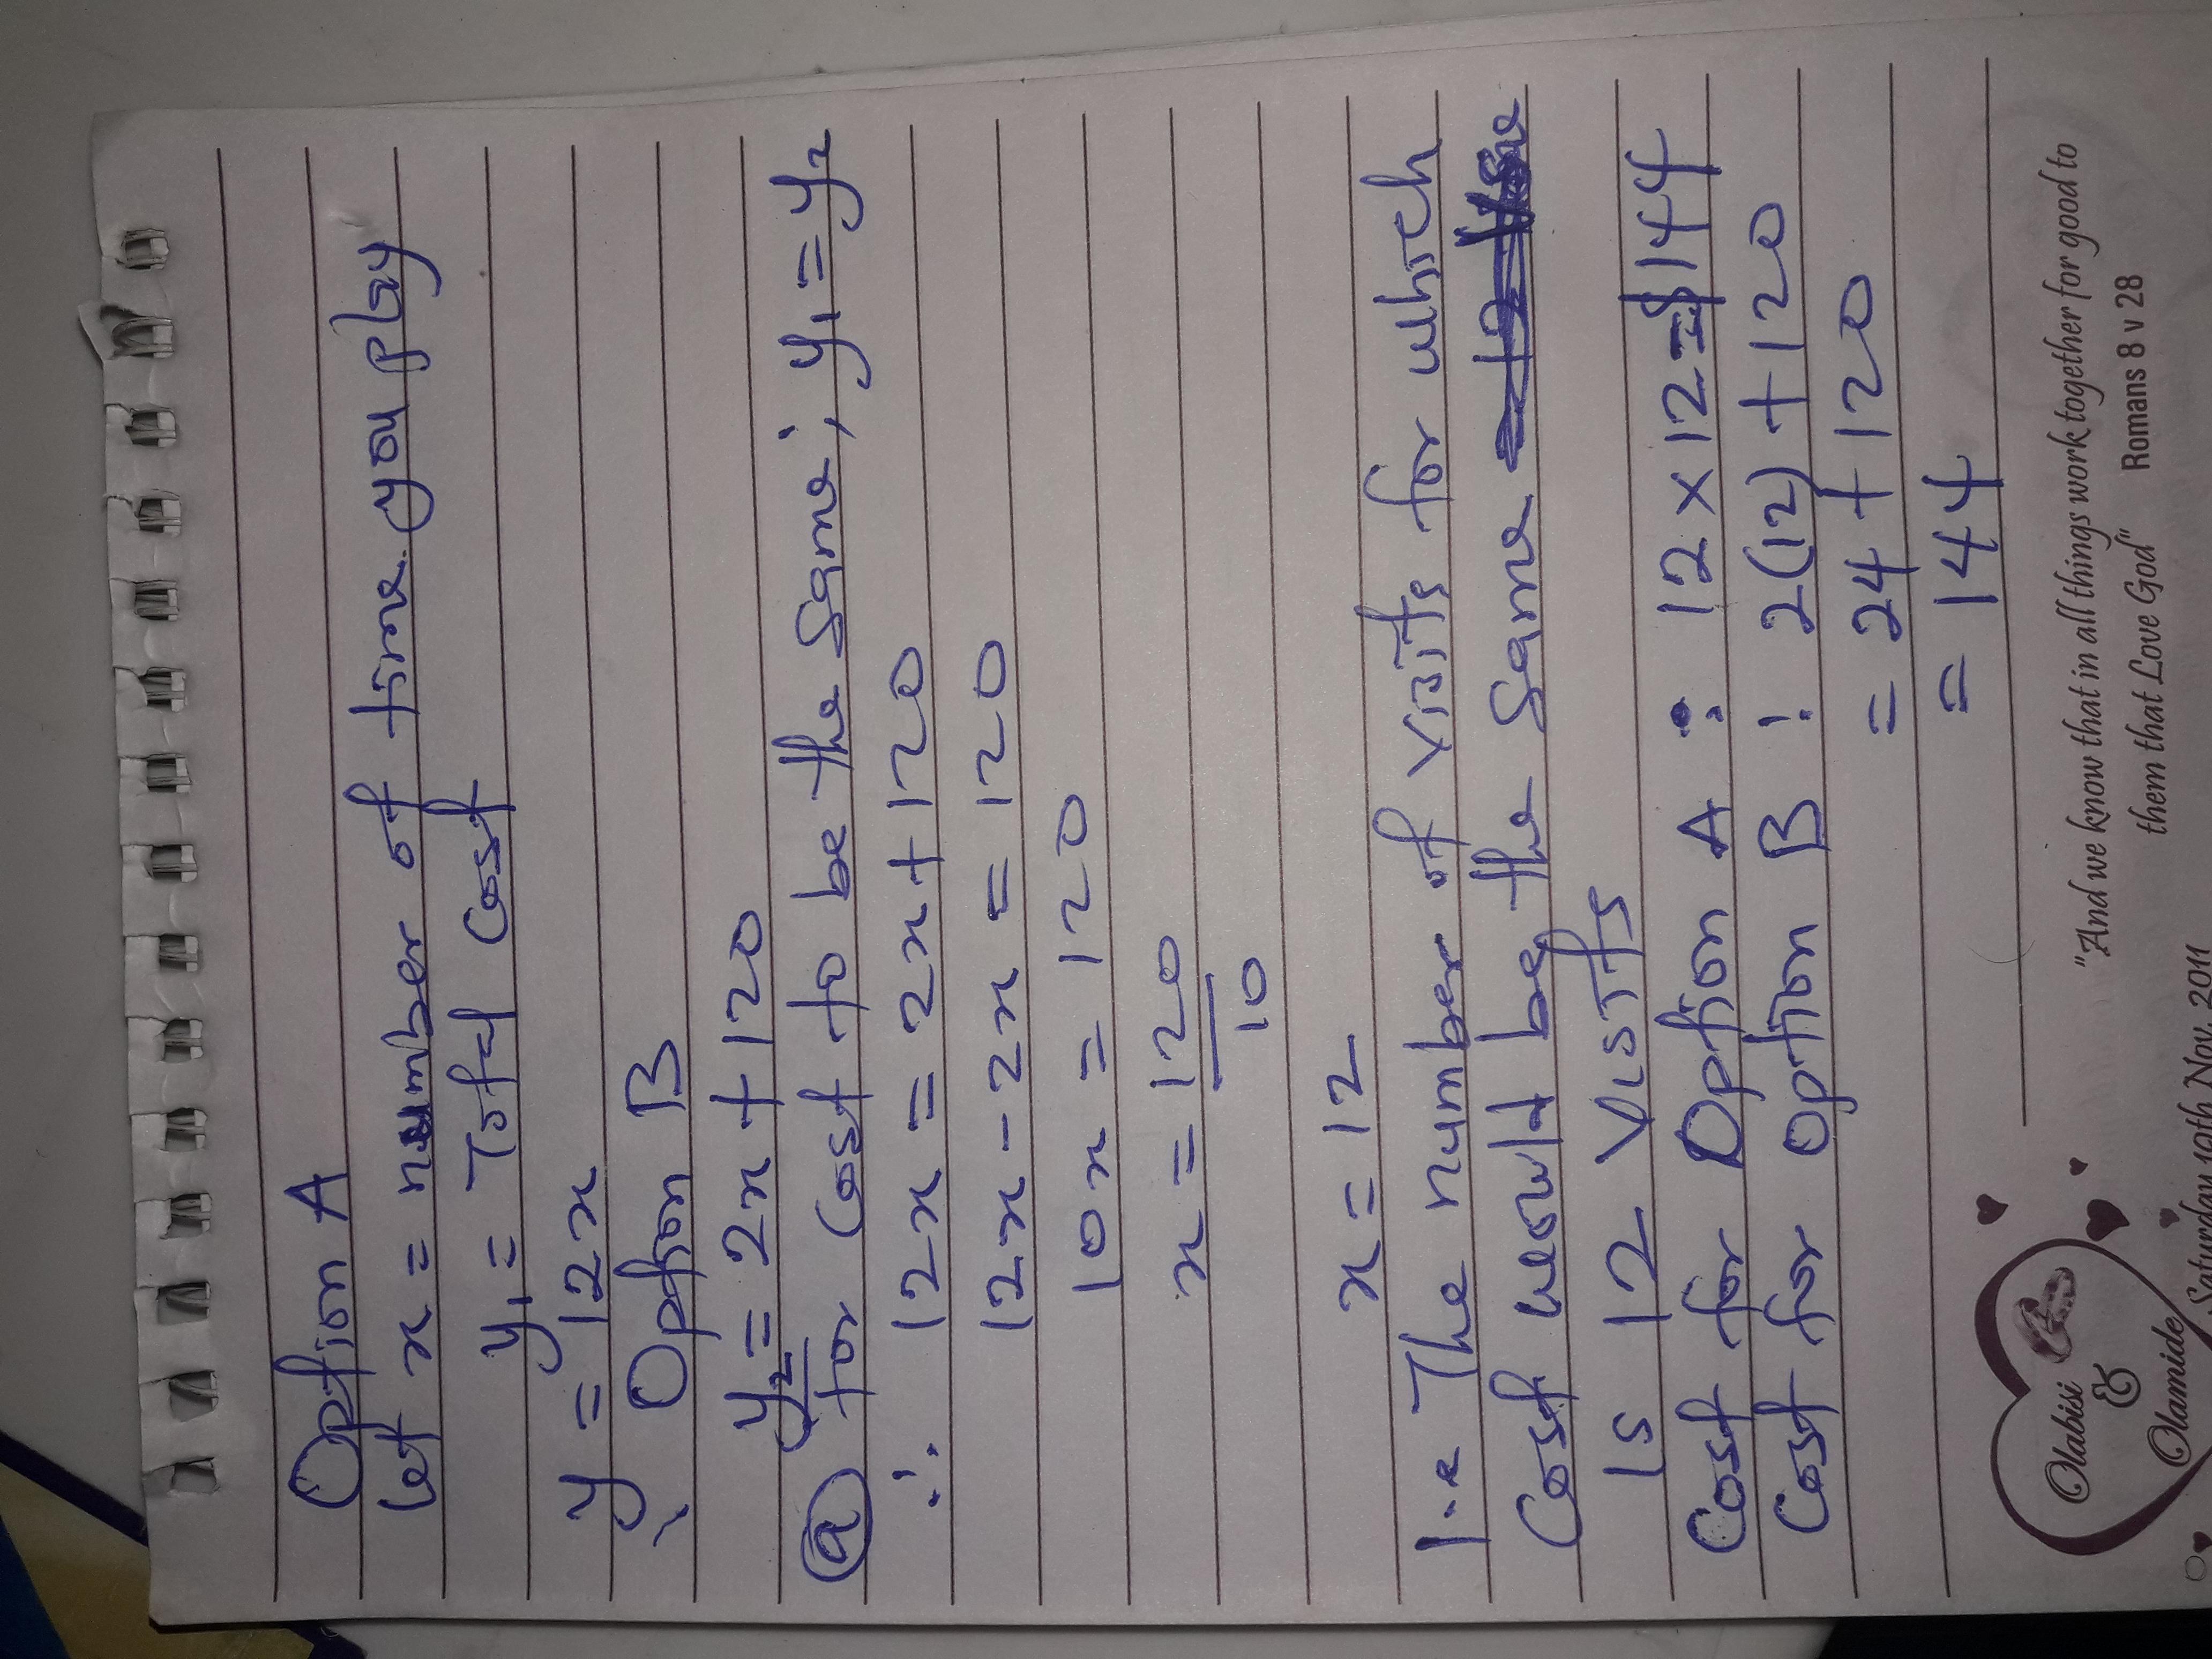 Option A
let x = number of time you play
y₁ = Total Cost
y = 12x
Option B
y₂ = 2x + 120
(a) for Cost to be the same, y₁ = y₂
∴ 12x = 2x + 120
12x - 2x = 120
10x = 120
x = 120/10
x = 12
I.e The number of visits for which
Cost would be the same
is 12 visits
Cost for Option A : 12 × 12 = $144
Cost for Option B : 2(12) + 120
= 24 + 120
= 144
"And we know that in all things work together for good to
them that Love God" Romans 8 v 28
Olabisi
&
Olamide
Saturday 19th Nov, 2011